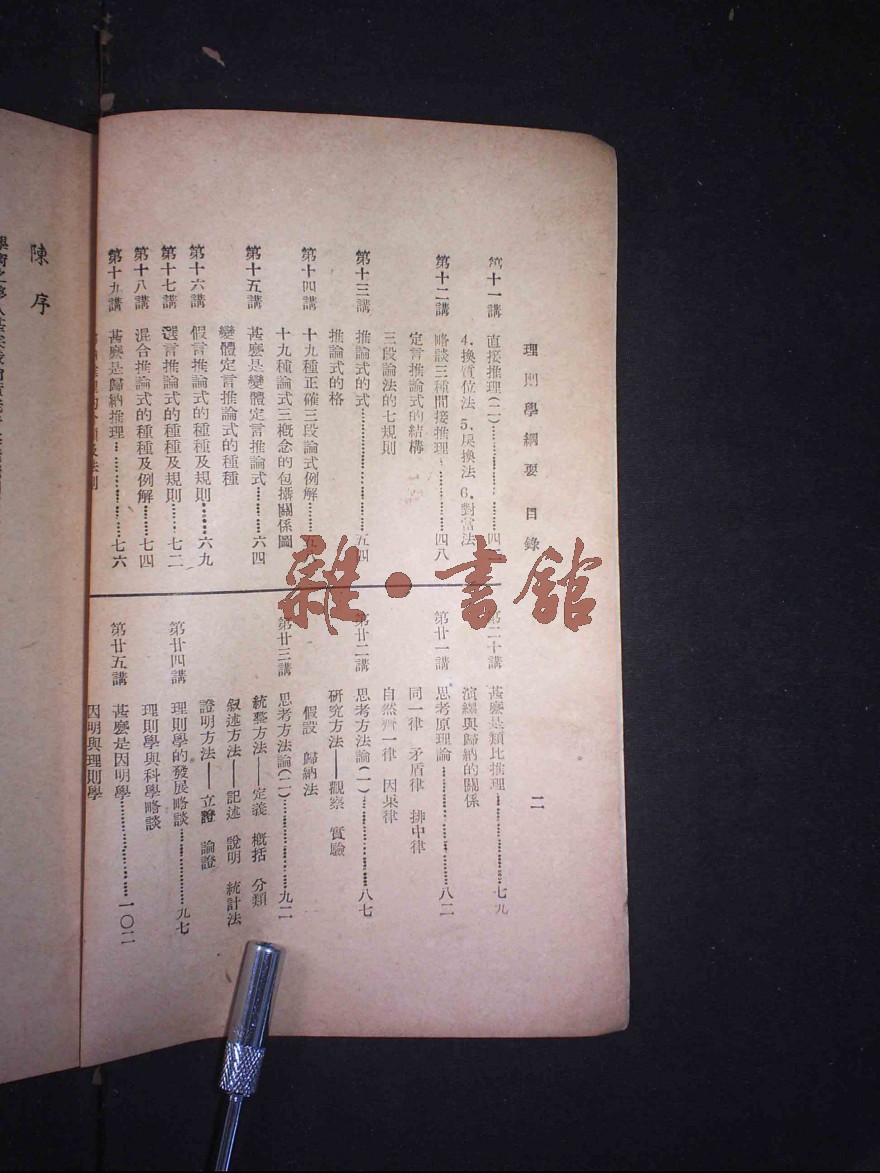 理則學綱要 目錄
二
第十一講 直接推理(二)
4.換質位法 5.戾換法 6.對當法
第十二講 略談三種間接推理……四八
定言推論式的結構
三段論法的七規則
第十三講 推論式的式……五四
推論式的格
第十四講 十九種正確三段論式例解
十九種論式三概念的包攝關係圖
第十五講 甚麼是變體定言推論式……六四
變體定言推論式的種種
第十六講 假言推論式的種種及規則……六九
第十七講 選言推論式的種種及規則……七二
第十八講 混合推論式的種種及例解……七四
第十九講 甚麼是歸納推理……七六
第二十講 甚麼是類比推理……七九
演繹與歸納的關係
第廿一講 思考原理論……八二
同一律 矛盾律 排中律
自然齊一律 因果律
第廿二講 思考方法論(一)……八七
研究方法——觀察 實驗
假設 歸納法
第廿三講 思考方法論(二)……九二
統整方法——定義 概括 分類
敍述方法——記述 說明 統計法
證明方法——立證 論證
第廿四講 理則學的發展略談……九七
理則學與科學略談
第廿五講 甚麼是因明學……一〇二
因明與理則學
陳序
雜·書館